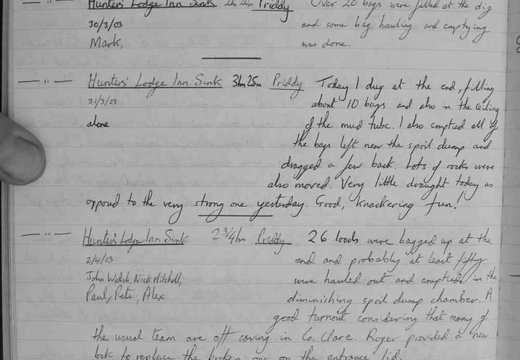 Hunters' Lodge Inn Sink Priddy Over 20 bags were filled at the dig
30/3/03 and some bag hauling and emptying
Mark, was done.
— " — Hunters' Lodge Inn Sink 3hr 25m Priddy Today I dug at the end, filling
31/3/03 about 10 bags and also in the ceiling
alone of the mud tube. I also emptied all of
the bags left near the spoil dump and
dragged a few back. Lots of rocks were
also moved. Very little draught today as
opposed to the very strong one yesterday. Good, knackering fun!
— " — Hunters' Lodge Inn Sink 2 3/4 hr Priddy 26 loads were bagged up at the
2/4/03 end and probably at least fifty
John Walsh, Nick Mitchell, were hauled out and emptied in the
Paul, Pete, Alex diminishing spoil dump chamber. A
good turnout considering that many of
the usual team are off caving in Co. Clare. Roger provided a new
to replace the broken one on the entrance lid.